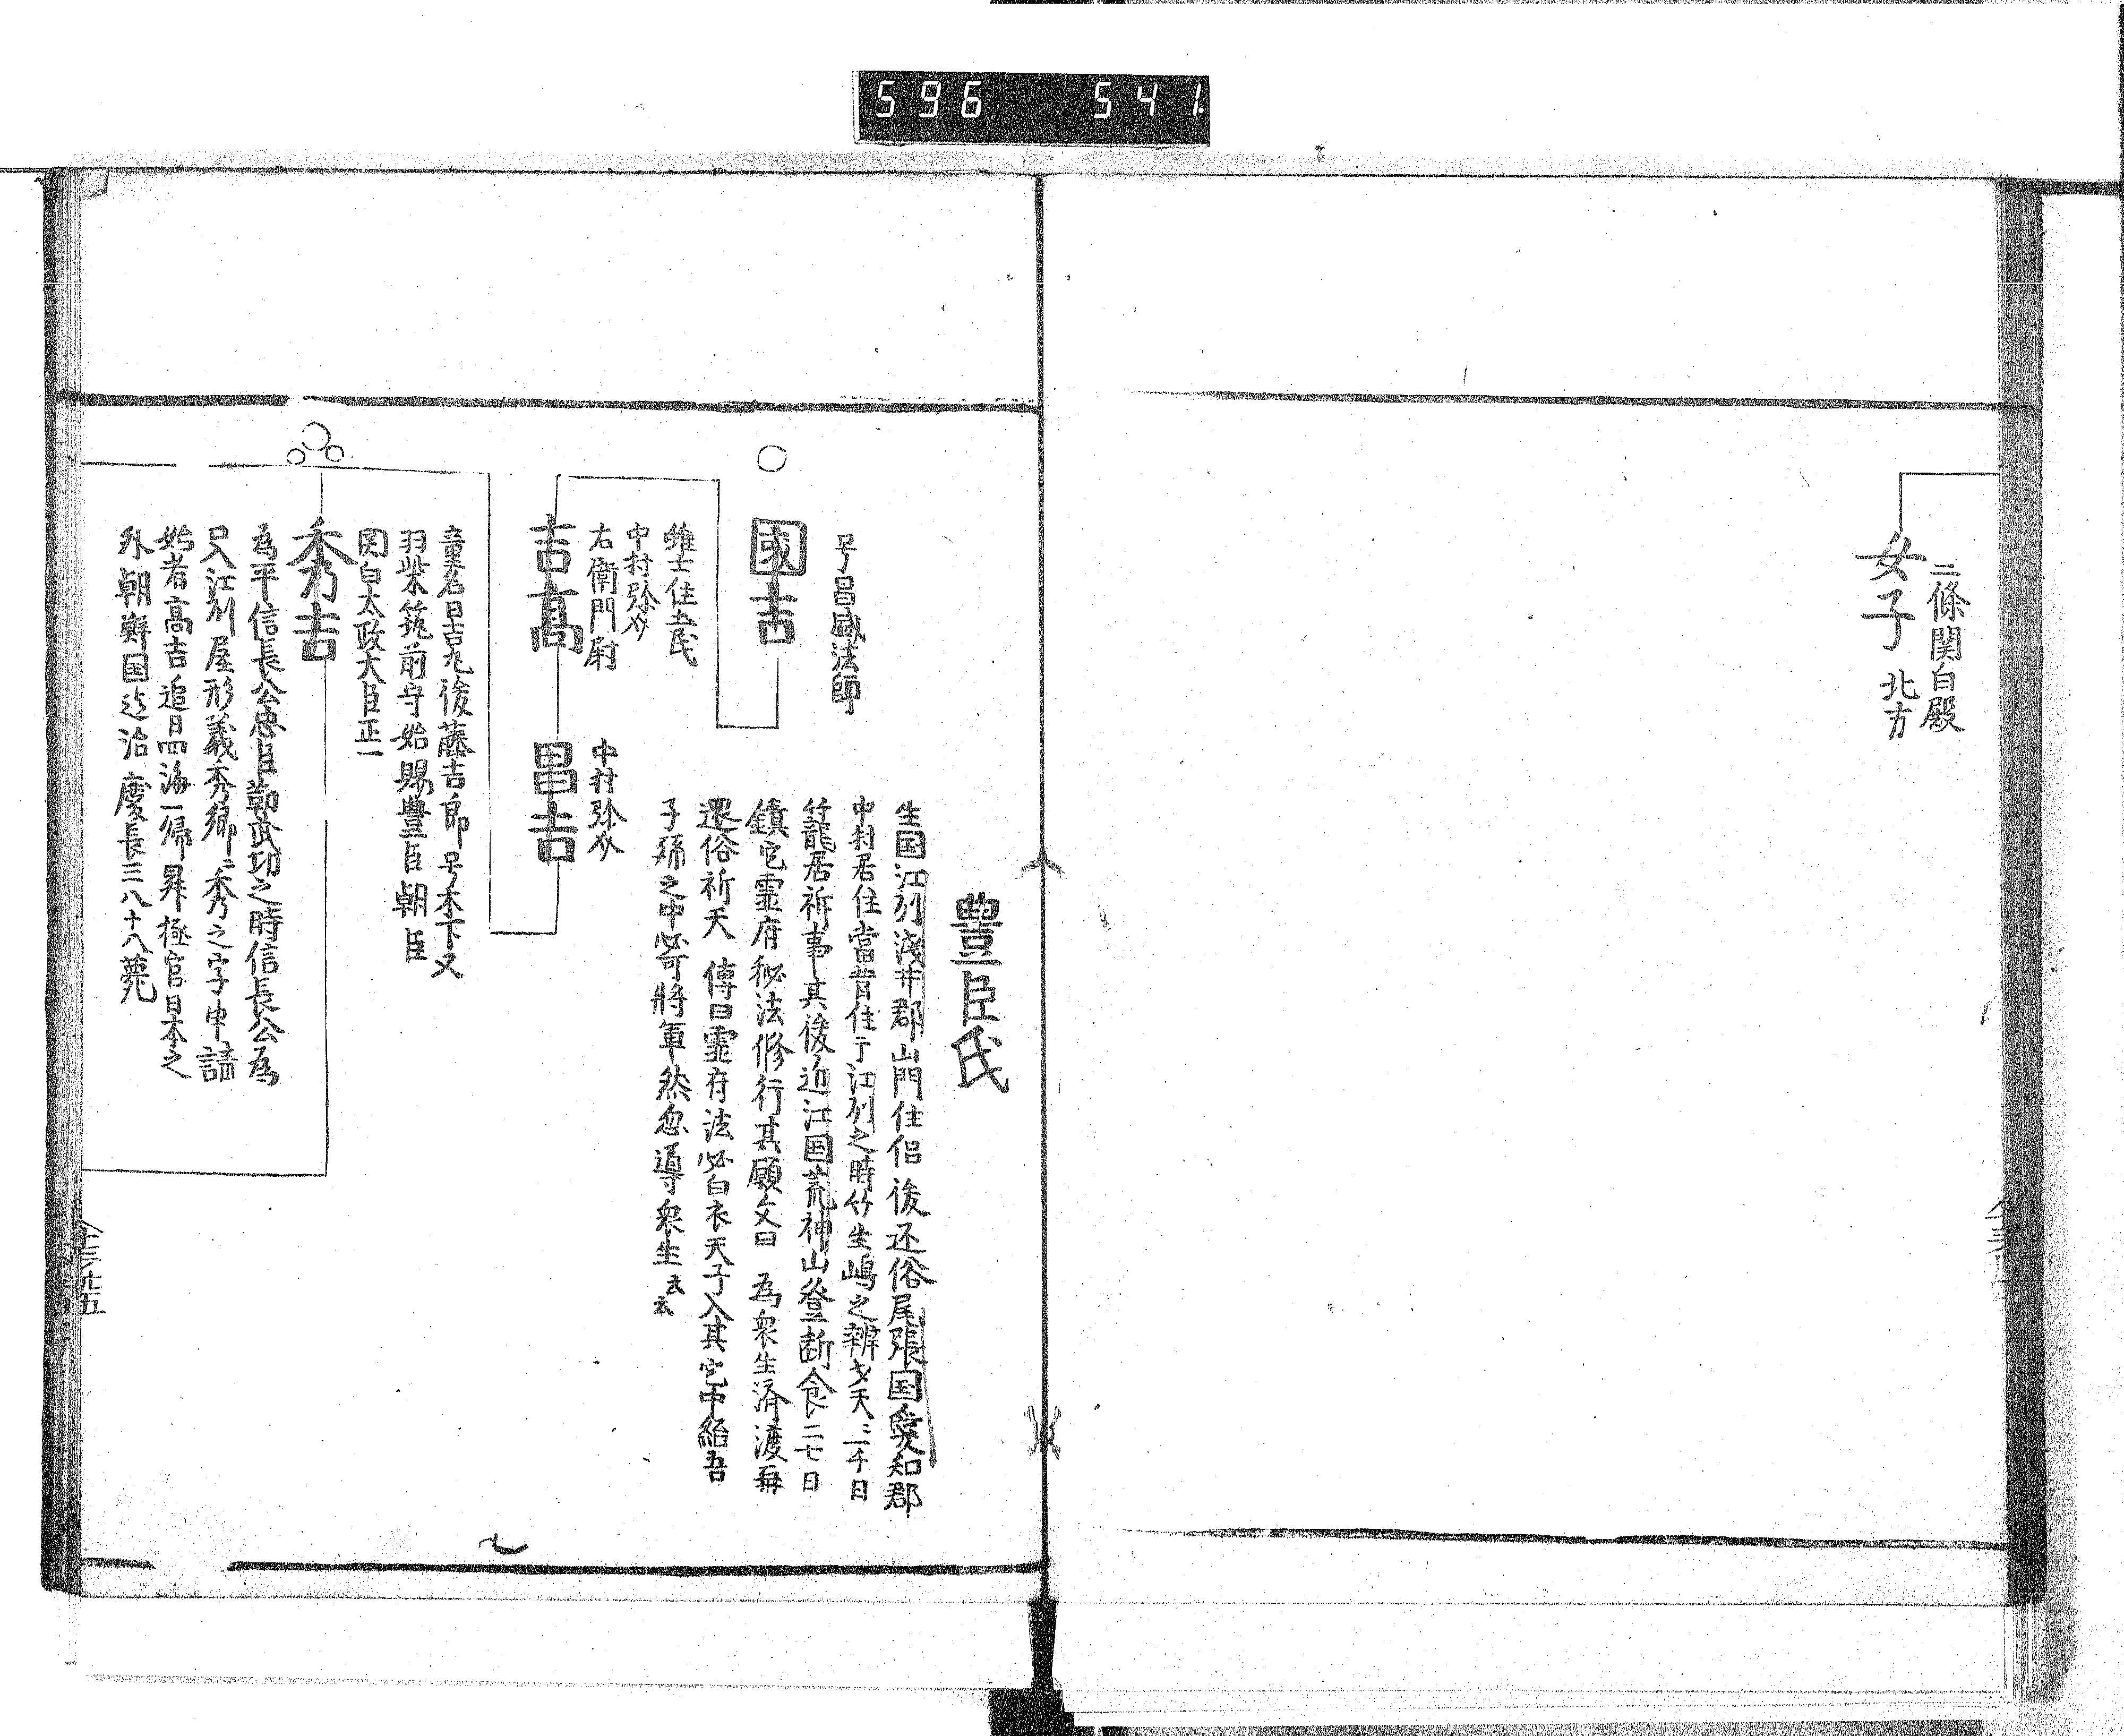 596 541
二條関白殿
女子 北方
豊臣氏
生国江州浅井郡山門住侶後还俗尾張国愛知郡
中村居住當昔住于江州之時竹生嶋之辨才天ニ一千日
篭居祈事其後近江国荒神山登断食二七日
鎮宅霊府秘法修行其願文曰 為衆生済渡再
還俗祈天 傳曰霊府法必白衣天子入其宅中紿吾
子孫之中必可將軍然忽導衆生云云
号昌盛法師
國吉
雖士住土民
中村弥
右衛門尉
吉高
中村弥
昌吉
童名日吉丸後藤吉郎号木下又
羽柴筑前守始賜豊臣朝臣
関白太政大臣正一
秀吉
為平信長公忠臣勵武功之時信長公為
江州屋形義秀郷ニ秀之字申請
始者高吉追日四海一帰昇極官日本之
外朝鮮国迄治慶長三八十八薨